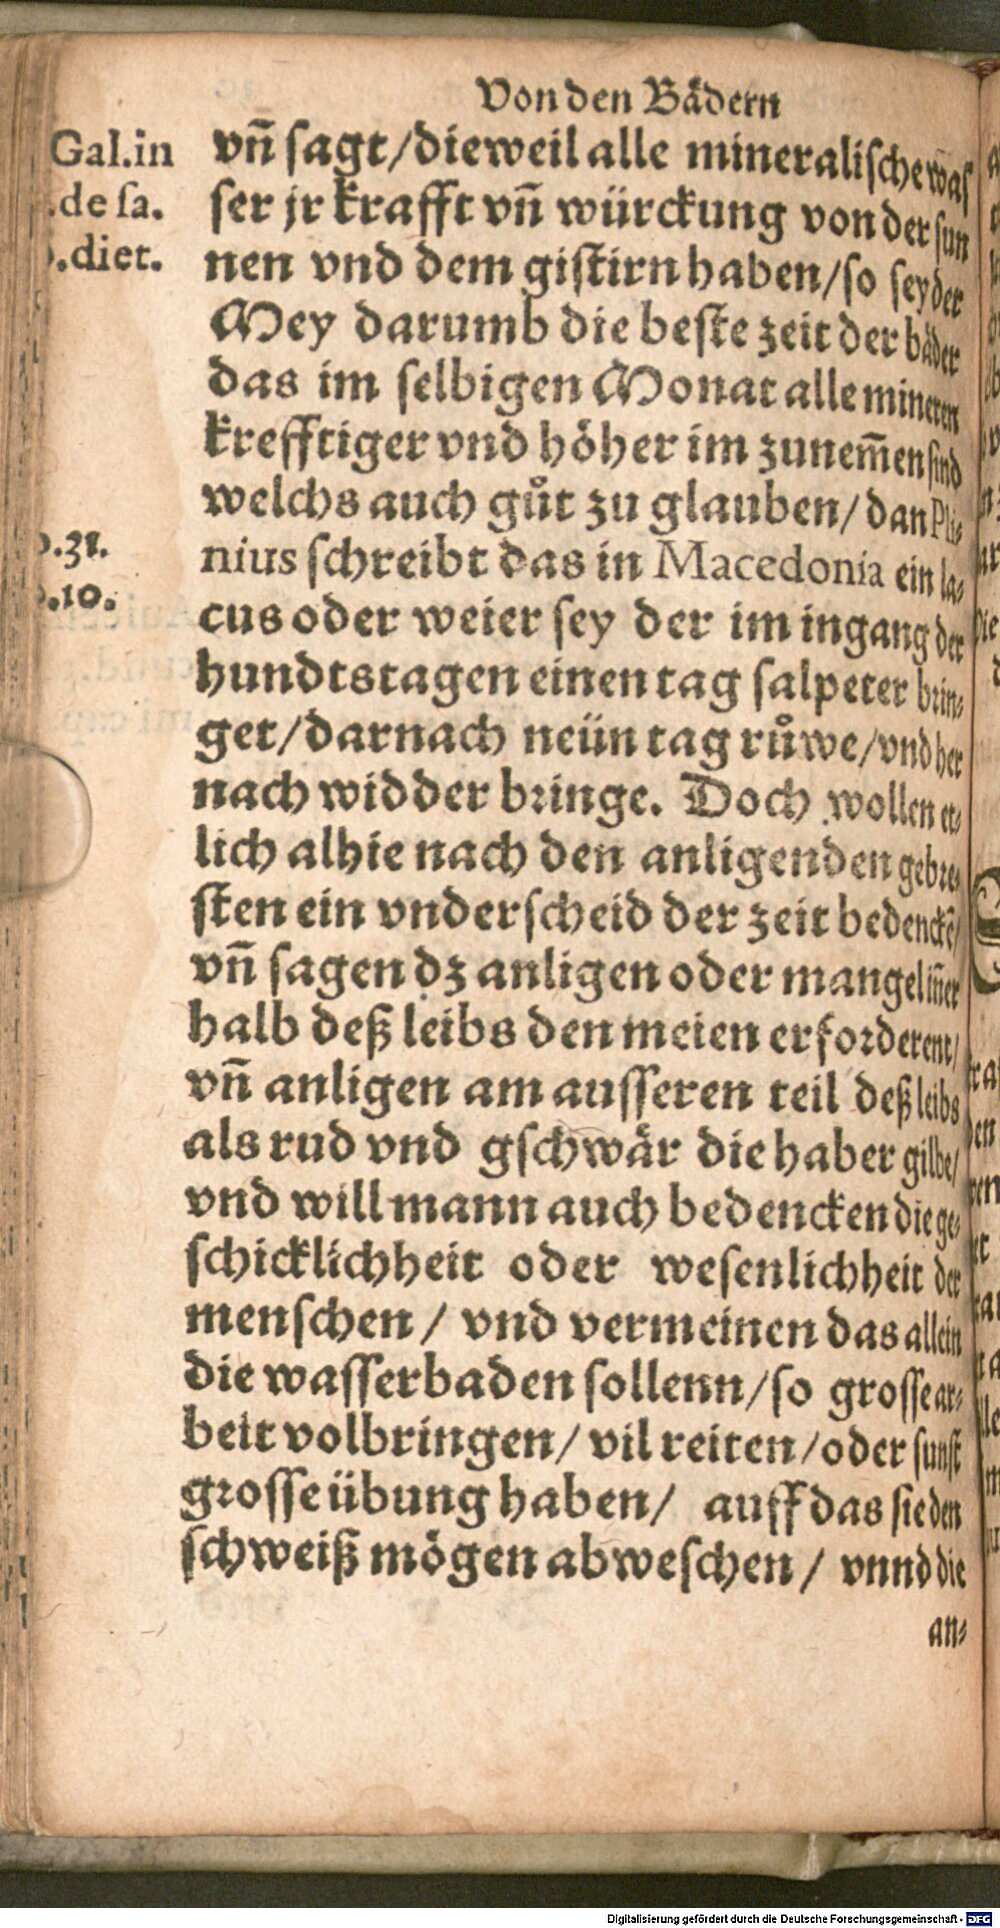 Von den Bädern
Gal.in
.de sa.
.diet.
vn̄ sagt/dieweil alle mineralische was
ser jr krafft vn̄ würckung von der sun
nen vnd dem gistirn haben/so sey der
Mey darumb die beste zeit der bäder
das im selbigen Monat alle mineren
krefftiger vnd höher im zunem̄en sind
welchs auch gůt zu glauben/dan Pli⸗
nius schreibt das in Macedonia ein la⸗
.31.
.10.
cus oder weier sey der im ingang der
hundtstagen einen tag salpeter brin⸗
get/darnach neün tag růwe/vnd her
nach widder bringe. Doch wollen et⸗
lich alhie nach den anligenden gebre⸗
sten ein vnderscheid der zeit bedenckē/
vn̄ sagen dz anligen oder mangel in̄er
halb deß leibs den meien erforderent/
vn̄ anligen am ausseren teil deß leibs
als rud vnd gschwär die haber gilbe/
vnd will mann auch bedencken die ge⸗
schicklichheit oder wesenlichheit der
menschen / vnd vermeinen das allein
die wasserbaden sollenn/so grosse ar⸗
beit volbringen/vil reiten/oder sunst
grosse übung haben/ auff das sie den
schweiß mögen abweschen / vnnd die
an⸗
Digitalisierung gefördert durch die Deutsche Forschungsgemeinschaft - DFG